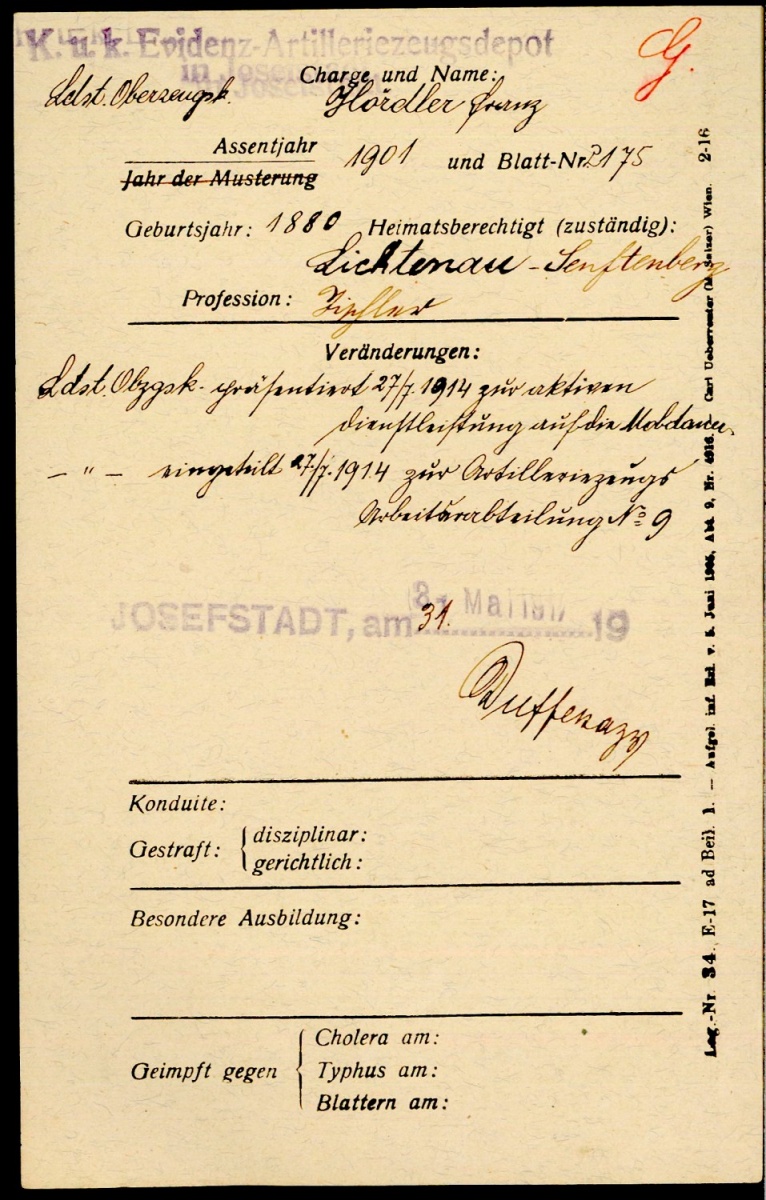 K. u. k. Evidenz-Artilleriezeugsdepot
in Josefstadt
G.
Charge und Name:
Ldst. Oberzeugsk. Hördler Franz
Assentjahr
Jahr der Musterung
1901 und Blatt-Nr. 2175
Geburtsjahr: 1880 Heimatsberechtigt (zuständig):
Lichtenau - Senftenberg
Profession: Tischler
Veränderungen:
Ldst. Obzgsk. präsentiert 27/7. 1914 zur aktiven
Dienstleistung auf die
— " — eingeteilt 27/7. 1914 zur Artilleriezeugs
Arbeitsrabteilung No 9
JOSEFSTADT, am 31. Mai 1917 19
Konduite:
Gestraft: disziplinar:
gerichtlich:
Besondere Ausbildung:
Geimpft gegen
Cholera am:
Typhus am:
Blattern am:
Lag.-Nr. 34. E-17 ad Beil. 1. — Aufgel. inf. Erl. v. 5. Juni 1905, Abt. 9, Nr. 4916. — Carl Ueberreuter (M. Salzer) Wien. 2-16